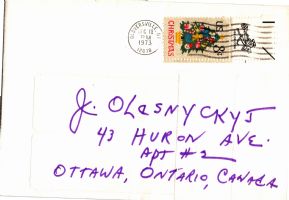 GLOVERSVILLE, N.Y.
DEC 10
PM
1973
12078
CHRISTMAS
US 8¢
J. OLESNYCKYJ
43 HURON AVE.
APT #2
OTTAWA, ONTARIO, CANADA